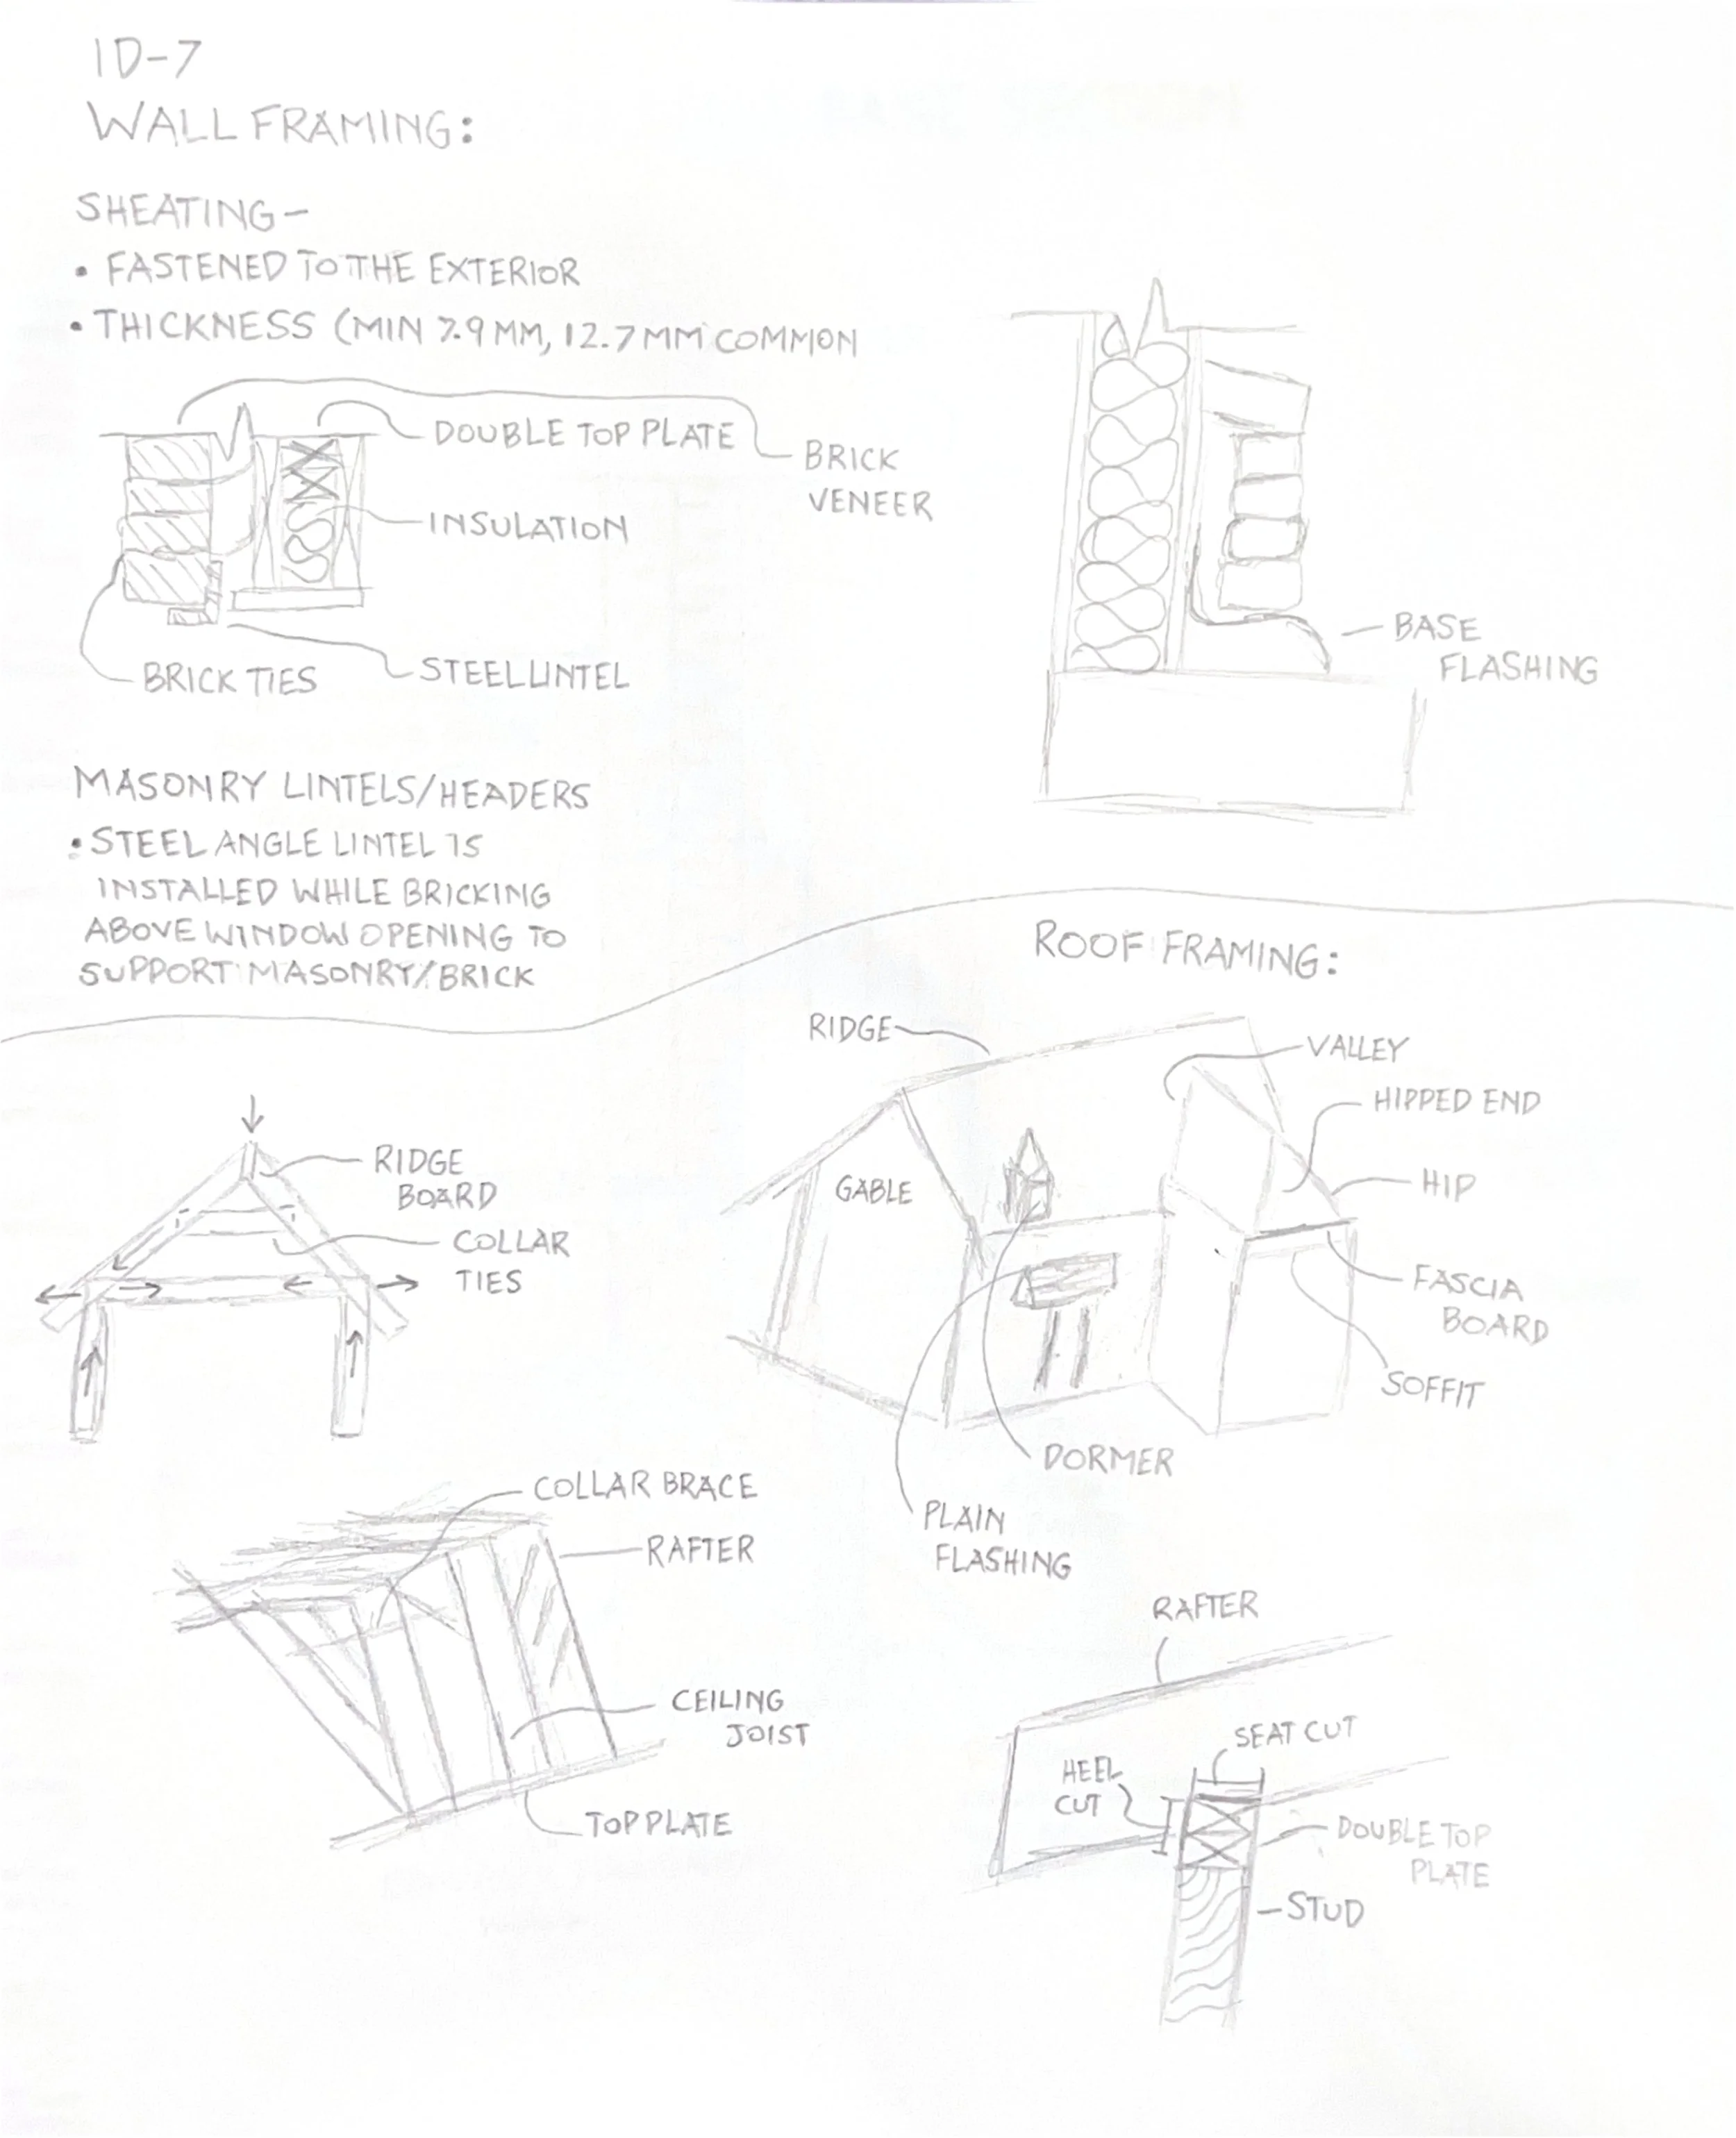 1D-7
WALL FRAMING:
SHEATING-
• FASTENED TO THE EXTERIOR
• THICKNESS (MIN 7.9MM, 12.7MM COMMON
DOUBLE TOP PLATE
BRICK
VENEER
INSULATION
BRICK TIES
STEEL LINTEL
BASE
FLASHING
MASONRY LINTELS/HEADERS
• STEEL ANGLE LINTEL IS
INSTALLED WHILE BRICKING
ABOVE WINDOW OPENING TO
SUPPORT MASONRY/BRICK
ROOF FRAMING:
RIDGE
VALLEY
HIPPED END
HIP
GABLE
FASCIA
BOARD
SOFFIT
DORMER
PLAIN
FLASHING
RIDGE
BOARD
COLLAR
TIES
COLLAR BRACE
RAFTER
CEILING
JOIST
TOP PLATE
RAFTER
SEAT CUT
HEEL
CUT
DOUBLE TOP
PLATE
-STUD